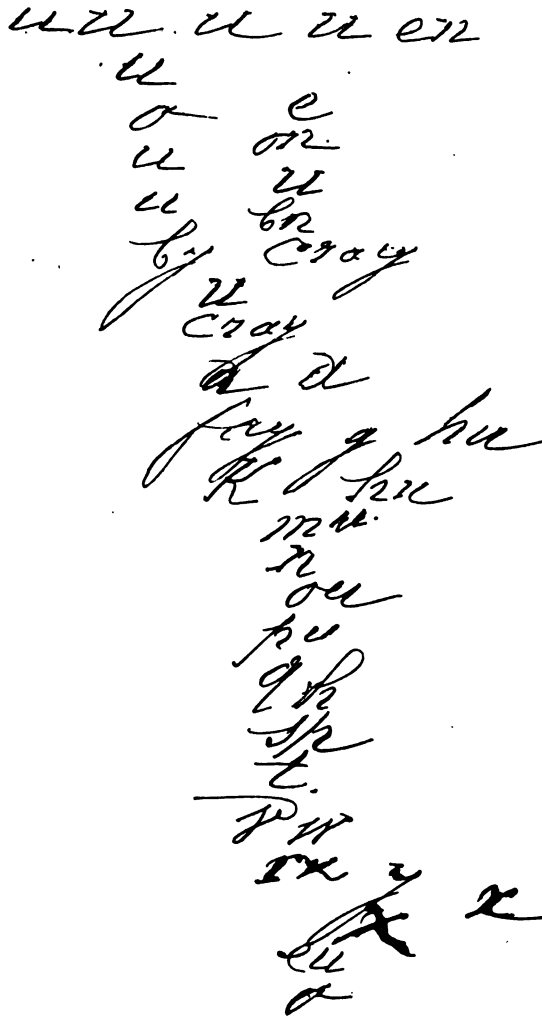 uu u u en
u
o e
u on
u u
u bn
by cray
u
cray
a a
fay g hu
K hu
mu
n
ou
pu
qh
sp
t.
w
x y
x x
eu
o